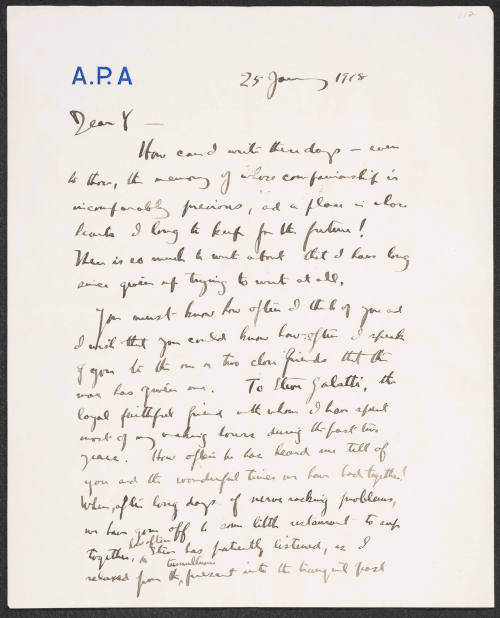 112
A.P.A
25 January 1918
Dear Y —
How can I write these days — even
to those, the memory of whose companionship is
incomparably precious, and a place in whose
hearts I long to keep for the future!
There is so much to write about that I have long
since given up trying to write at all.
You must know how often I think of you and
I wish that you could know how often I speak
of you to the one or two close friends that the
war has given me. To Steve Galatti, the
loyal faithful friend with whom I have spent
most of my waking hours during the past two
years. How often he has heard me tell of
you and the wonderful times we have had together!
When, after long days of nerve racking problems,
we have gone off to some little restaurant to sup
together, how often Steve has patiently listened, as I
relaxed from the tumultuous present into the tranquil past